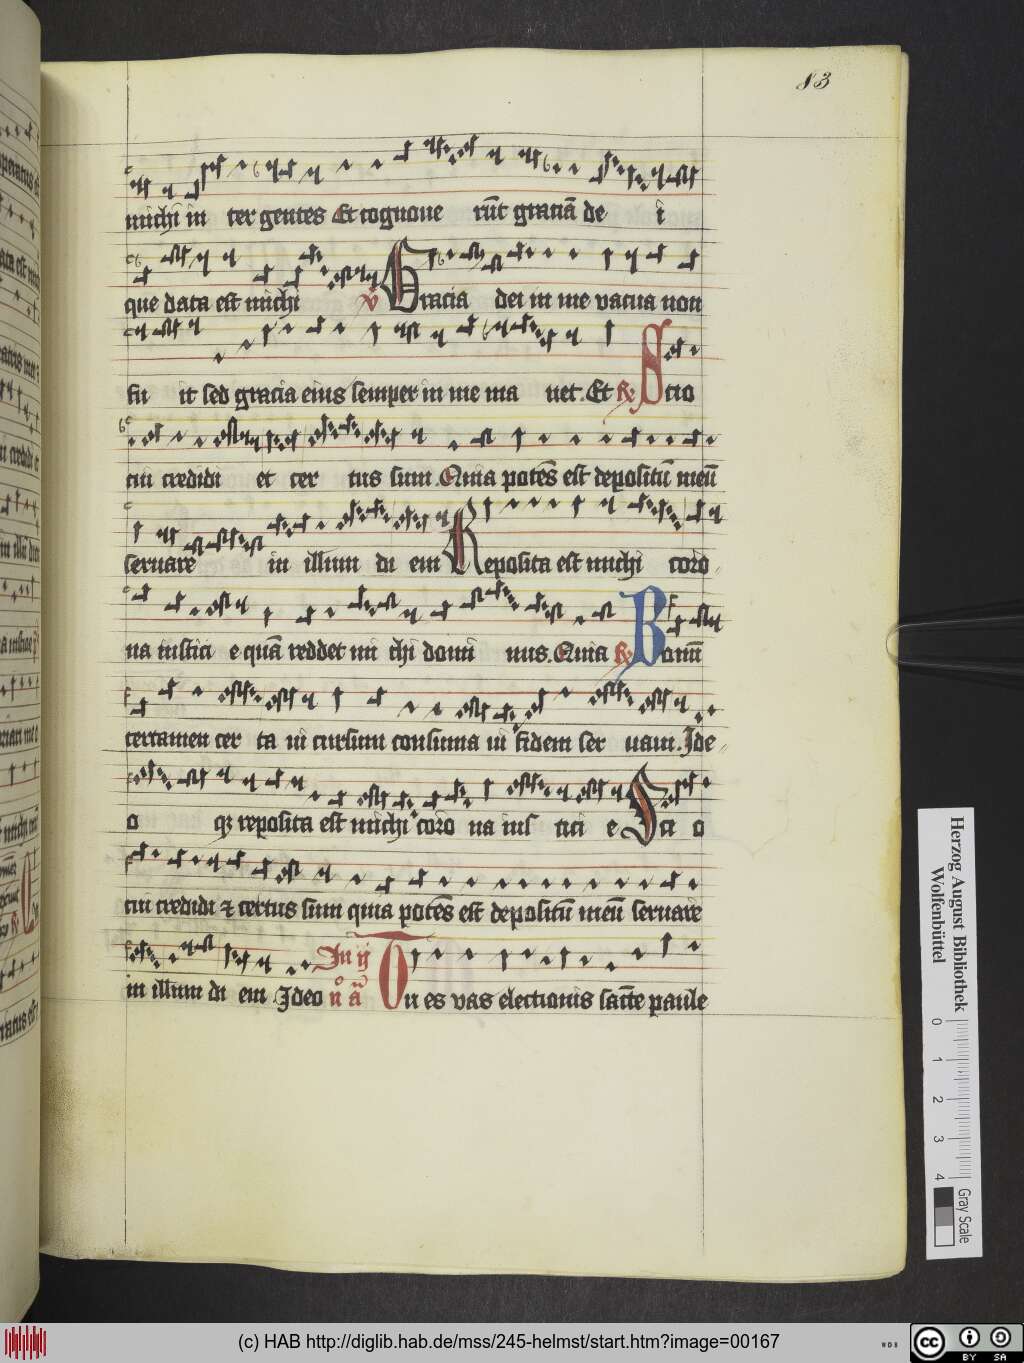 83
michi in ter gentes Et cognoue rūt graciā de i
que data est michi v̄ Gracia dei in me vacua non
fu it sed gracia eius semper in me ma net. Et R Scio
cui credidi et cer tus sum. Quia potēs est depositū meū
seruare in illum di em Reposita est michi coro
na iusticie quā reddet mi chi domi nus. Quia R Bonū
certamen cer ta ui cursum consuma ui fidem ser uaui. Ide
o qꝫ reposita est michi coro na ius tici e Sci o
cui credidi ⁊ certus sum quia potēs est depositū meū seruare
in illum di em Ideo In ij n̊ ā Tu es vas electionis sāte paule
Herzog August Bibliothek
Wolfenbüttel
0 1 2 3 4
Gray Scale
(c) HAB http://diglib.hab.de/mss/245-helmst/start.htm?image=00167
WDB
cc BY SA